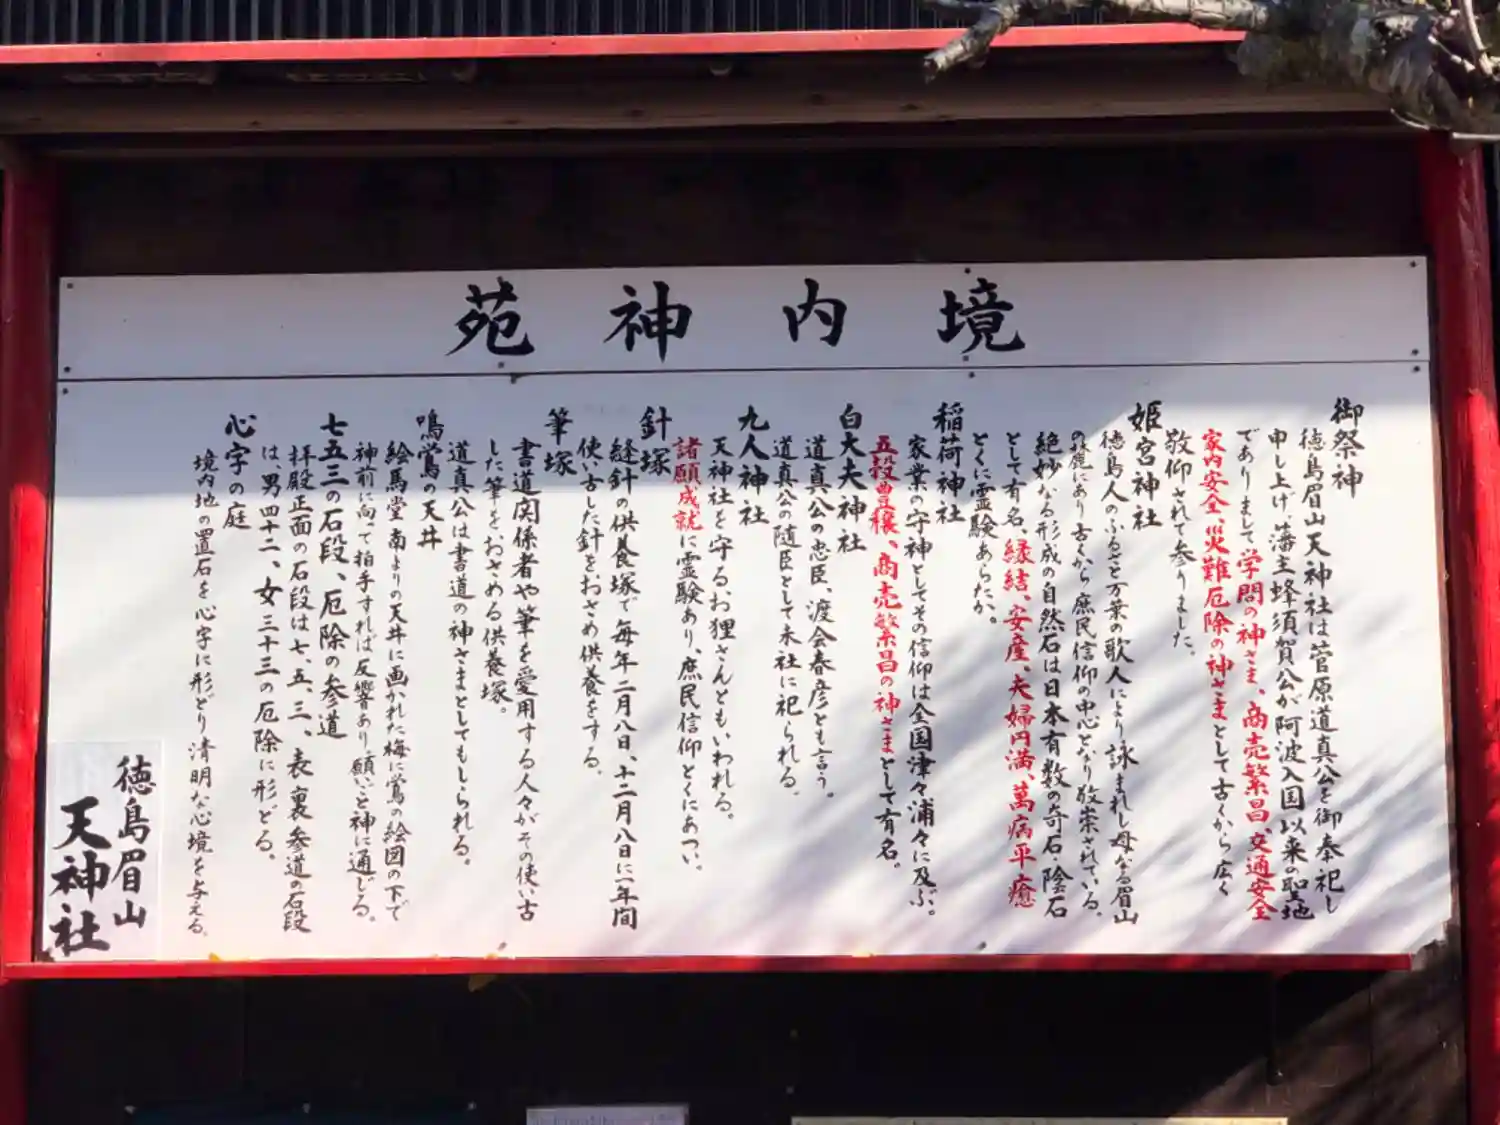 境内神苑
御祭神
徳島眉山天神社は菅原道真公を御奉祀し
申し上げ藩主蜂須賀公が阿波入国以来の聖地
でありまして学問の神さま、商売繁昌、交通安全
家内安全、災難厄除の神さまとして古くから広く
敬仰されて参りました。
姫宮神社
徳島人のふるさと万葉の歌人により詠まれし母なる眉山
の麓にあり古くから庶民信仰の中心となり敬崇されている。
絶妙なる形成の自然石は日本有数の奇石・陰石
として有名、縁結、安産、夫婦円満、萬病平癒
とくに霊験あらたか。
稲荷神社
家業の守神としてその信仰は全国津々浦々に及ぶ。
五穀豊穣、商売繁昌の神さまとして有名。
白大夫神社
道真公の忠臣、渡会春彦とも言う。
道真公の随臣として末社に祀られる。
九人神社
天神社を守るお狸さんともいわれる。
諸願成就に霊験あり、庶民信仰とくにあつい。
針塚
縫針の供養塚で毎年二月八日、十二月八日に一年間
使い古した針をおさめ供養をする。
筆塚
書道関係者や筆を愛用する人々がその使い古
した筆をおさめる供養塚。
道真公は書道の神さまとしてもしられる。
鳴鴬の天井
絵馬堂南よりの天井に画かれた梅に鴬の絵図の下で
神前に向って拍手すれば反響あり願いごと神に通じる。
七五三の石段、厄除の参道
拝殿正面の石段は七、五、三、表裏参道の石段
は男四十二、女三十三の厄除に形どる。
心字の庭
境内地の置石を心字に形どり清明な心境を与える。
徳島眉山
天神社